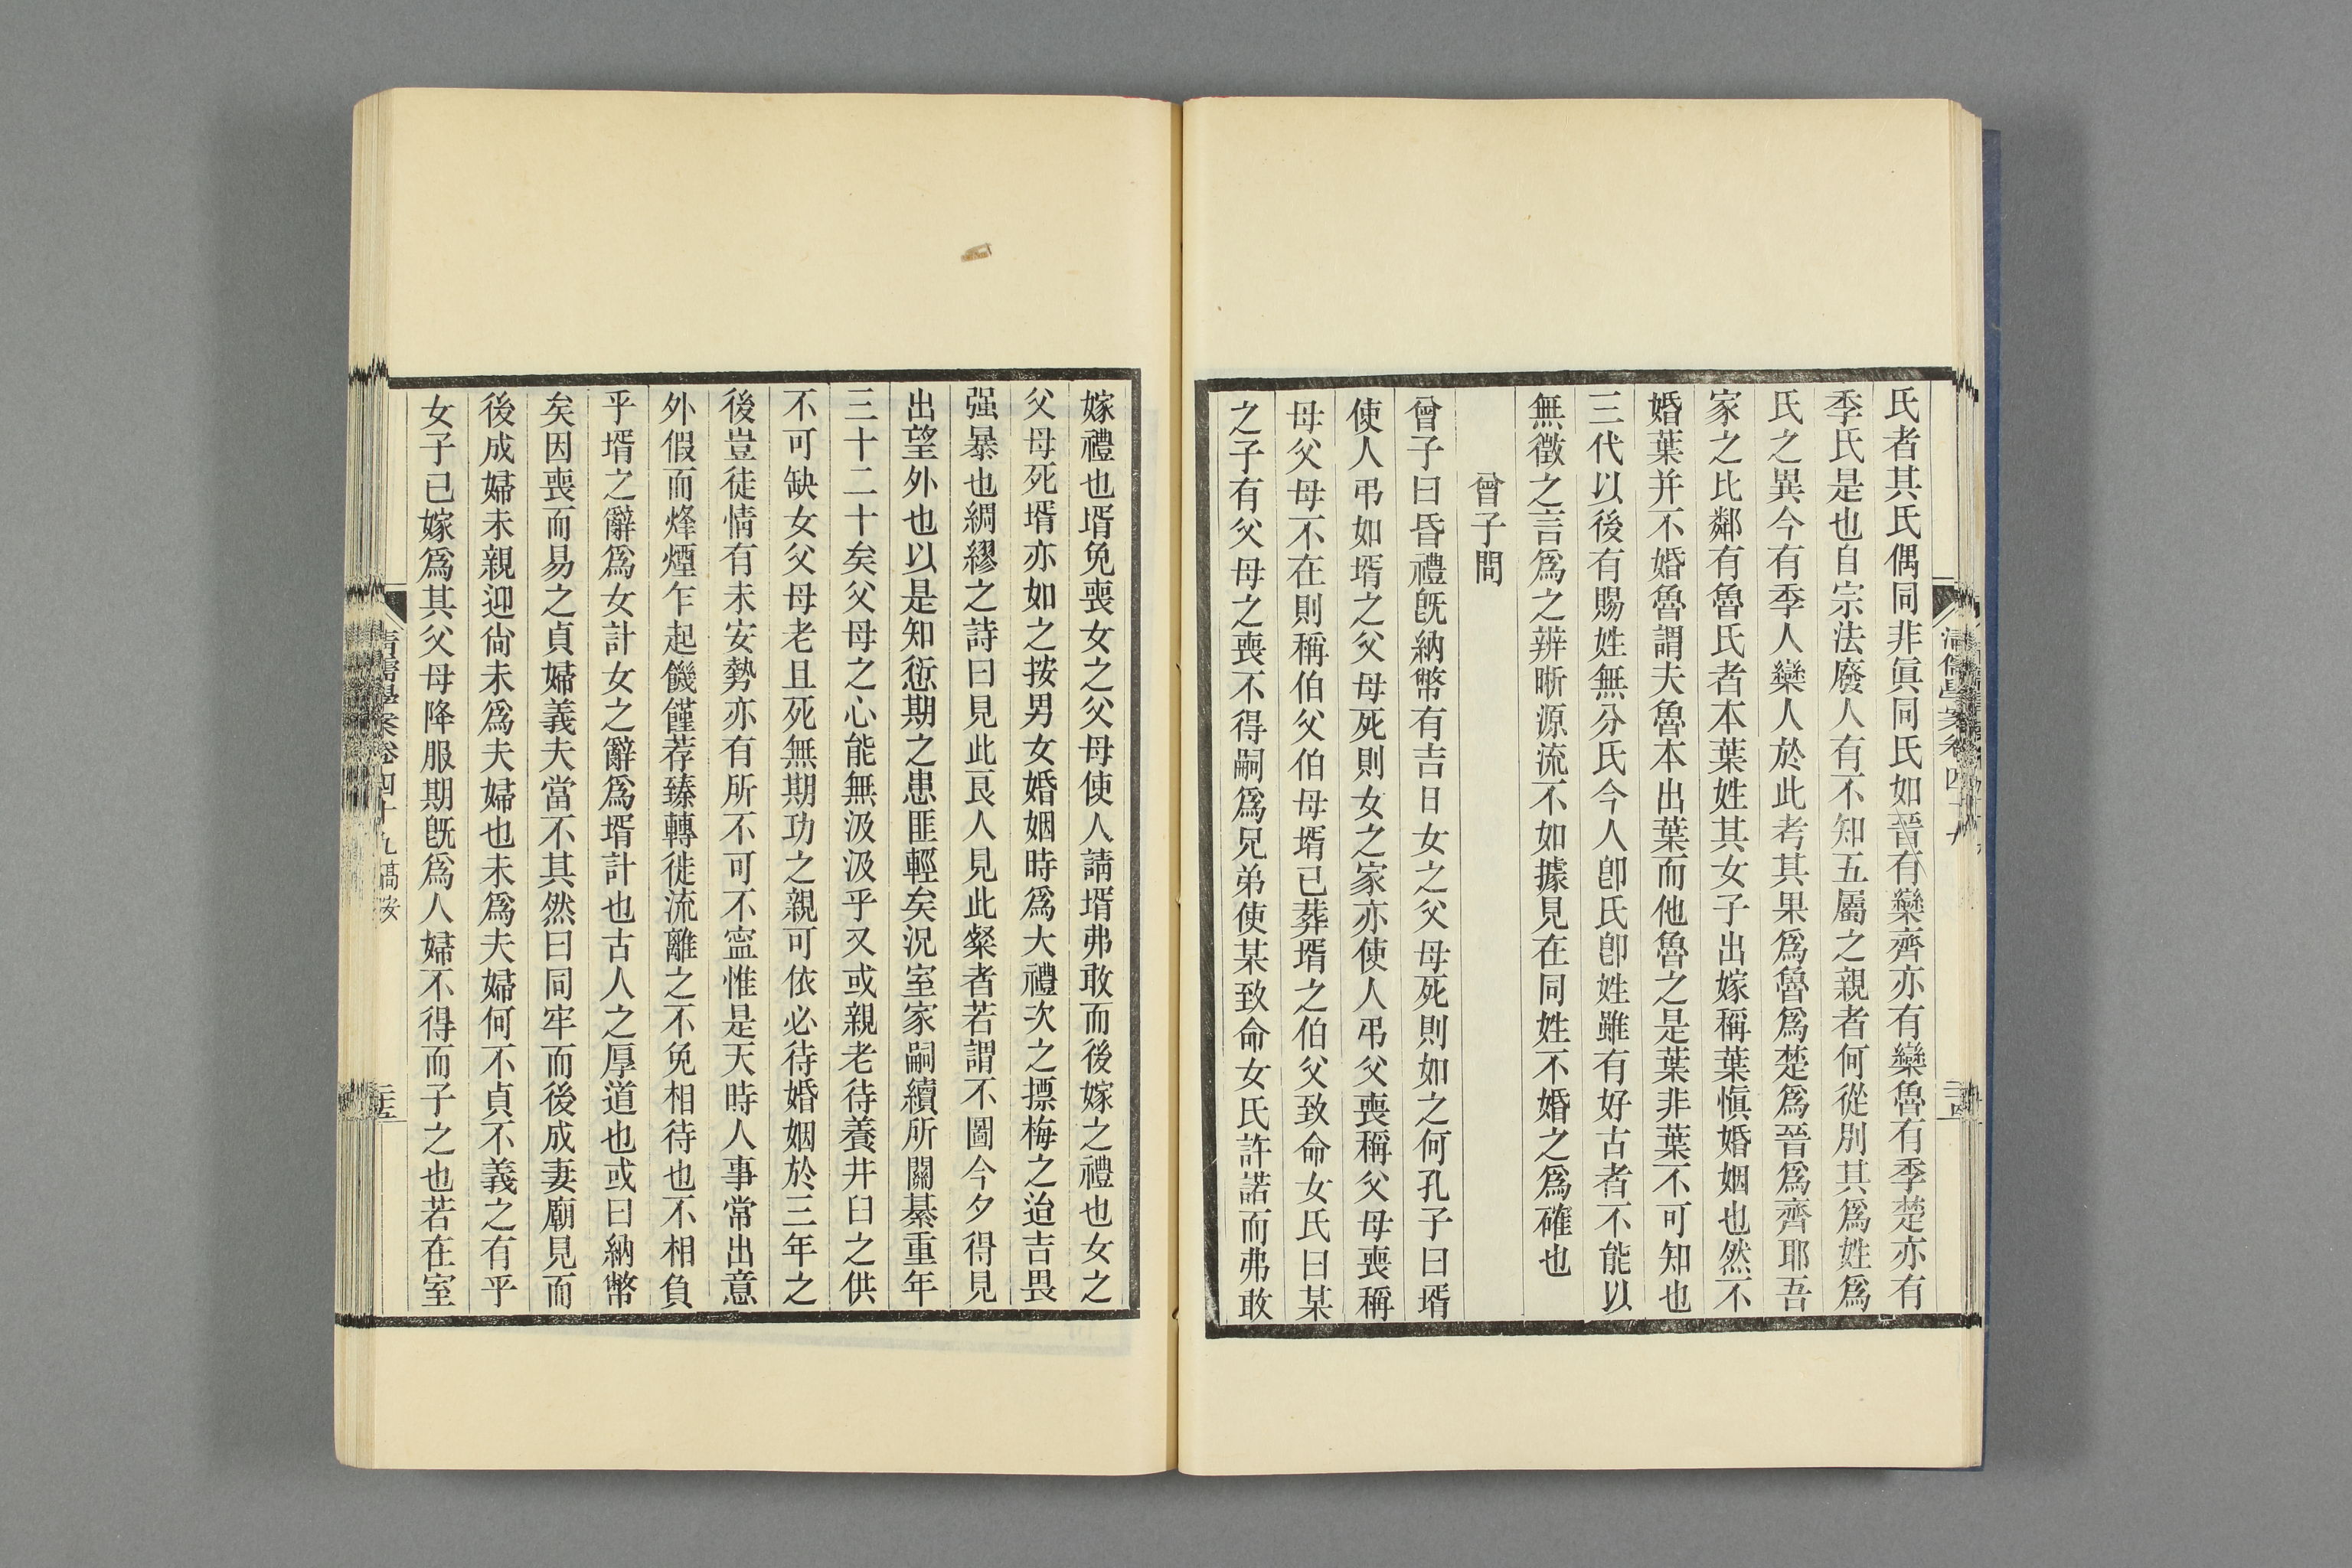 氏者其氏偶同非眞同氏如晉有欒齊亦有欒魯有季楚亦有
季氏是也自宗法廢人有不知五屬之親者何從別其爲姓爲
氏之異今有季人欒人於此考其果爲魯爲楚爲晉爲齊耶吾
家之比鄰有魯氏者本葉姓其女子出嫁稱葉愼婚姻也然不
婚葉并不婚魯謂夫魯本出葉而他魯之是葉非葉不可知也
三代以後有賜姓無分氏今人卽氏卽姓雖有好古者不能以
無徵之言爲之辨晰源流不如據見在同姓不婚之爲確也
曾子問
曾子曰昏禮旣納幣有吉日女之父母死則如之何孔子曰壻
使人弔如壻之父母死則女之家亦使人弔父喪稱父母喪稱
母父母不在則稱伯父伯母壻已葬壻之伯父致命女氏曰某
之子有父母之喪不得嗣爲兄弟使某致命女氏許諾而弗敢
嫁禮也壻免喪女之父母使人請壻弗敢而後嫁之禮也女之
父母死壻亦如之按男女婚姻時爲大禮次之摽梅之迨吉畏
强暴也綢繆之詩曰見此良人見此粲者若謂不圖今夕得見
出望外也以是知愆期之患匪輕矣況室家嗣續所關綦重年
三十二十矣父母之心能無汲汲乎又或親老待養井臼之供
不可缺女父母老且死無期功之親可依必待婚姻於三年之
後豈徒情有未安勢亦有所不可不寍惟是天時人事常出意
外假而烽煙乍起饑饉荐臻轉徙流離之不免相待也不相負
乎壻之辭爲女計女之辭爲壻計也古人之厚道也或曰納幣
矣因喪而易之貞婦義夫當不其然曰同牢而後成妻廟見而
後成婦未親迎尙未爲夫婦也未爲夫婦何不貞不義之有乎
女子已嫁爲其父母降服期旣爲人婦不得而子之也若在室
清儒學案卷四十九 高安